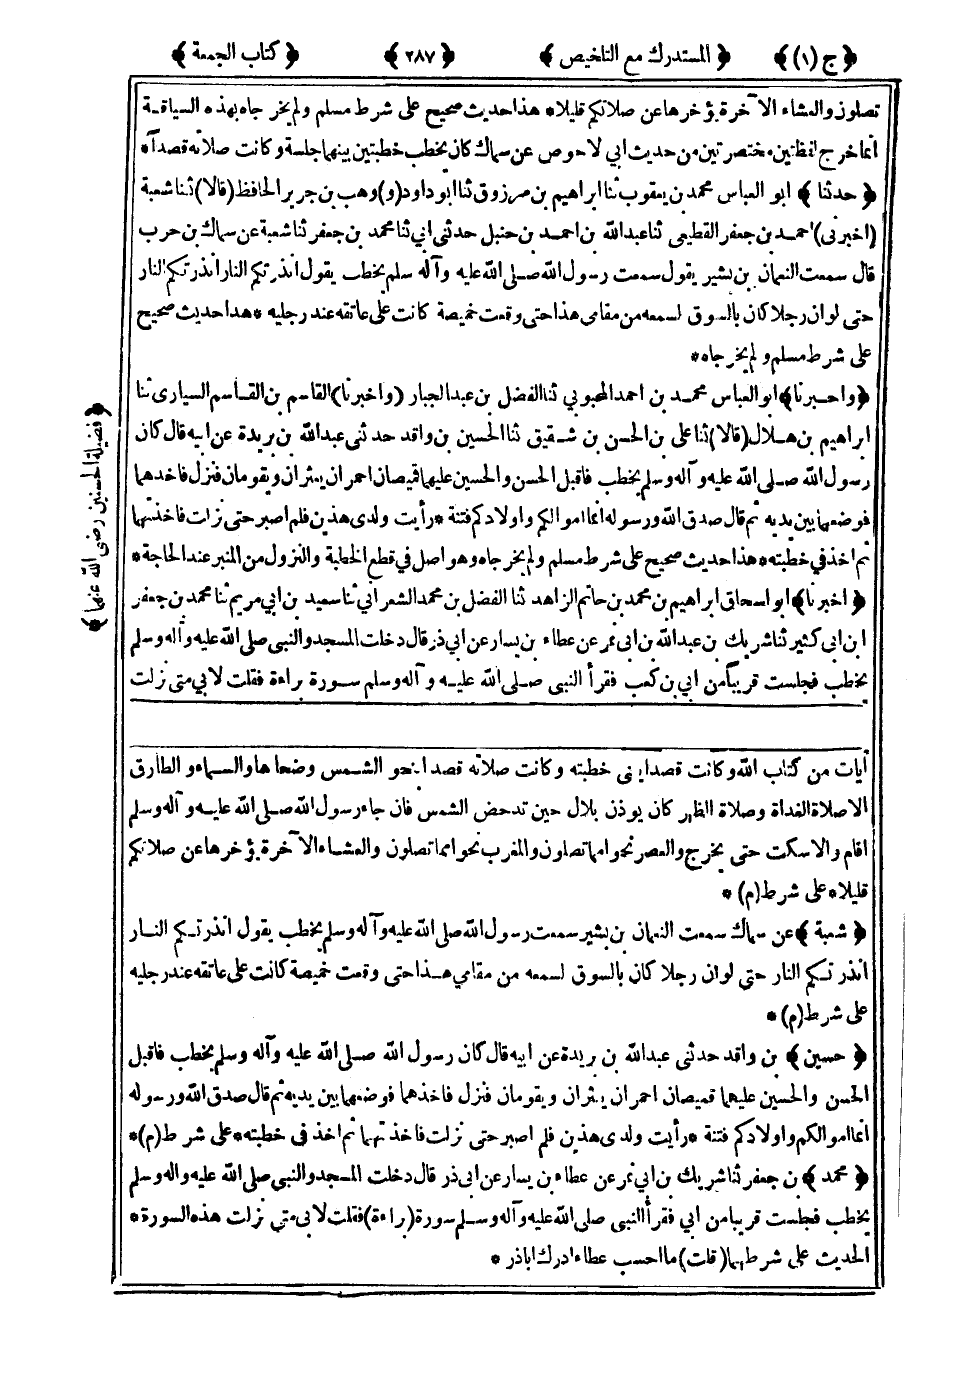 ﴿ ج (١) ﴾ ﴿ المستدرك مع التلخيص ﴾ ﴿ ٢٨٧ ﴾ ﴿ كتاب الجمعة ﴾
تصلون والعشاء الآخرة يؤخرها عن صلاتكم قليلا * هذا حديث صحيح على شرط مسلم ولم يخرجاه بهذه السياقة
انما خرج لفظتين مختصرتين من حديث ابي الاحوص عن سماك كان يخطب خطبتين بينهما جلسة وكانت صلاته قصدا *
﴿ حدثنا ﴾ ابو العباس محمد بن يعقوب ثنا ابراهيم بن مرزوق ثنا ابو داود (و) وهب بن جرير الحافظ (قالا) ثنا شعبة
(اخبرنى) احمد بن جعفر القطيعى ثنا عبد الله بن احمد بن حنبل حدثى ابي ثنا محمد بن جعفر ثنا شعبة عن سماك بن حرب
قال سمعت النعمان بن بشير يقول سمعت رسول الله صلى الله عليه وآله سلم يخطب يقول انذرتكم النار انذرتكم النار
حتى لو ان رجلا كان بالسوق لسمعه من مقامى هذا حتى وقعت خميصة كانت على عاتقه عند رجليه * هذا حديث صحيح
على شرط مسلم ولم يخرجاه *
﴿ واخبرنا ﴾ ابو العباس محمد بن احمد المحبوبي ثنا الفضل بن عبد الجبار (واخبرنا) القاسم بن القاسم السيارى ثنا
ابراهيم بن هلال (قالا) ثنا على بن الحسن بن شقيق ثنا الحسين بن واقد حدثى عبد الله بن بريدة عن ابيه قال كان
رسول الله صلى الله عليه وآله وسلم يخطب فاقبل الحسن والحسين عليهما قميصان احمران يعثران ويقومان فنزل فاخذهما
فوضعهما بين يديه ثم قال صدق الله ورسوله انما اموالكم واولادكم فتنة * رأيت ولدى هذين فلم اصبر حتى نزلت فاخذتهما
ثم اخذ فى خطبته * هذا حديث صحيح على شرط مسلم ولم يخرجاه وهو اصل في قطع الخطبة والنزول من المنبر عند الحاجة *
﴿ اخبرنا ﴾ ابو اسحاق ابراهيم بن محمد بن حاتم الزاهد ثنا الفضل بن محمد الشعراني ثنا سعيد بن ابي مريم ثنا محمد بن جعفر
ابن ابي كثير ثنا شريك بن عبد الله بن ابى نمر عن عطاء بن يسار عن ابي ذر قال دخلت المسجد والنبى صلى الله عليه وآله وسلم
يخطب فجلست قريبا من ابي بن كعب فقرأ النبى صلى الله عليه وآله وسلم سورة براءة فقلت لابي متى نزلت
﴿ فضيلة الحسنين رضى الله عنهما ﴾
آيات من كتاب الله وكانت قصدا يعنى خطبته وكانت صلاته قصدا بنحو الشمس وضحاها والسماء والطارق
الا صلاة الغداة وصلاة الظهر كان يوذن بلال حين تدحض الشمس فان جاء رسول الله صلى الله عليه وآله وسلم
اقام والا سكت حتى يخرج والعصر نحوا مما تصلون والمغرب نحوا مما تصلون والعشاء الآخرة يؤخرها عن صلاتكم
قليلا * على شرط (م) *
﴿ شعبة ﴾ عن سماك سمعت النعمان بن بشير سمعت رسول الله صلى الله عليه وآله وسلم يخطب يقول انذرتكم النار
انذرتكم النار حتى لو ان رجلا كان بالسوق لسمعه من مقامي هذا حتى وقعت خميصة كانت على عاتقه عند رجليه
على شرط (م) *
﴿ حسين ﴾ بن واقد حدثنى عبد الله بن بريدة عن ابيه قال كان رسول الله صلى الله عليه وآله وسلم يخطب فاقبل
الحسن والحسين عليهما قميصان احمران يعثران ويقومان فنزل فاخذهما فوضعهما بين يديه ثم قال صدق الله ورسوله
انما اموالكم واولادكم فتنة * رأيت ولدى هذين فلم اصبر حتى نزلت فاخذتهما ثم اخذ فى خطبته * على شرط (م) *
﴿ محمد ﴾ بن جعفر ثنا شريك بن ابي نمر عن عطاء بن يسار عن ابى ذر قال دخلت المسجد والنبى صلى الله عليه وآله وسلم
يخطب فجلست قريبا من ابي فقرأ النبى صلى الله عليه وآله وسلم سورة (براءة) فقلت لابى متى نزلت هذه السورة *
الحديث على شرطهما (قلت) ما احسب عطاء ادرك اباذر *